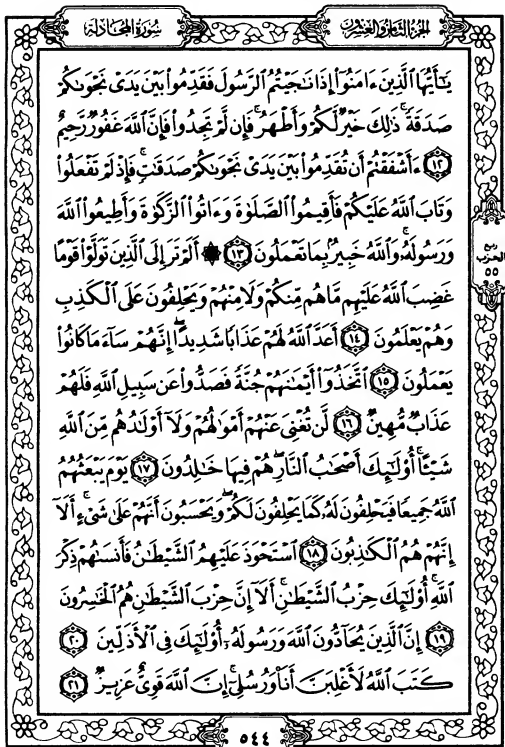 سُورَةُ المُجَادلة
الجُزءُ الثَّامِنُ وَالعِشْرُونَ
يَٰٓأَيُّهَا ٱلَّذِينَ ءَامَنُوٓا۟ إِذَا نَٰجَيْتُمُ ٱلرَّسُولَ فَقَدِّمُوا۟ بَيْنَ يَدَىْ نَجْوَىٰكُمْ
صَدَقَةً ۚ ذَٰلِكَ خَيْرٌ لَّكُمْ وَأَطْهَرُ ۚ فَإِن لَّمْ تَجِدُوا۟ فَإِنَّ ٱللَّهَ غَفُورٌ رَّحِيمٌ
١٢ ءَأَشْفَقْتُمْ أَن تُقَدِّمُوا۟ بَيْنَ يَدَىْ نَجْوَىٰكُمْ صَدَقَٰتٍ ۚ فَإِذْ لَمْ تَفْعَلُوا۟
وَتَابَ ٱللَّهُ عَلَيْكُمْ فَأَقِيمُوا۟ ٱلصَّلَوٰةَ وَءَاتُوا۟ ٱلزَّكَوٰةَ وَأَطِيعُوا۟ ٱللَّهَ
وَرَسُولَهُۥ ۚ وَٱللَّهُ خَبِيرٌۢ بِمَا تَعْمَلُونَ ١٣ ۞ أَلَمْ تَرَ إِلَى ٱلَّذِينَ تَوَلَّوْا۟ قَوْمًا
غَضِبَ ٱللَّهُ عَلَيْهِم مَّا هُم مِّنكُمْ وَلَا مِنْهُمْ وَيَحْلِفُونَ عَلَى ٱلْكَذِبِ
وَهُمْ يَعْلَمُونَ ١٤ أَعَدَّ ٱللَّهُ لَهُمْ عَذَابًا شَدِيدًا ۖ إِنَّهُمْ سَآءَ مَا كَانُوا۟
يَعْمَلُونَ ١٥ ٱتَّخَذُوٓا۟ أَيْمَٰنَهُمْ جُنَّةً فَصَدُّوا۟ عَن سَبِيلِ ٱللَّهِ فَلَهُمْ
عَذَابٌ مُّهِينٌ ١٦ لَّن تُغْنِىَ عَنْهُمْ أَمْوَٰلُهُمْ وَلَآ أَوْلَٰدُهُم مِّنَ ٱللَّهِ
شَيْـًٔا ۚ أُو۟لَٰٓئِكَ أَصْحَٰبُ ٱلنَّارِ ۖ هُمْ فِيهَا خَٰلِدُونَ ١٧ يَوْمَ يَبْعَثُهُمُ
ٱللَّهُ جَمِيعًا فَيَحْلِفُونَ لَهُۥ كَمَا يَحْلِفُونَ لَكُمْ ۖ وَيَحْسَبُونَ أَنَّهُمْ عَلَىٰ شَىْءٍ ۚ أَلَآ
إِنَّهُمْ هُمُ ٱلْكَٰذِبُونَ ١٨ ٱسْتَحْوَذَ عَلَيْهِمُ ٱلشَّيْطَٰنُ فَأَنسَىٰهُمْ ذِكْرَ
ٱللَّهِ ۚ أُو۟لَٰٓئِكَ حِزْبُ ٱلشَّيْطَٰنِ ۚ أَلَآ إِنَّ حِزْبَ ٱلشَّيْطَٰنِ هُمُ ٱلْخَٰسِرُونَ
١٩ إِنَّ ٱلَّذِينَ يُحَآدُّونَ ٱللَّهَ وَرَسُولَهُۥٓ أُو۟لَٰٓئِكَ فِى ٱلْأَذَلِّينَ ٢٠
كَتَبَ ٱللَّهُ لَأَغْلِبَنَّ أَنَا۠ وَرُسُلِىٓ ۚ إِنَّ ٱللَّهَ قَوِىٌّ عَزِيزٌ ٢١
ربع
الحزب
٥٥
٥٤٤